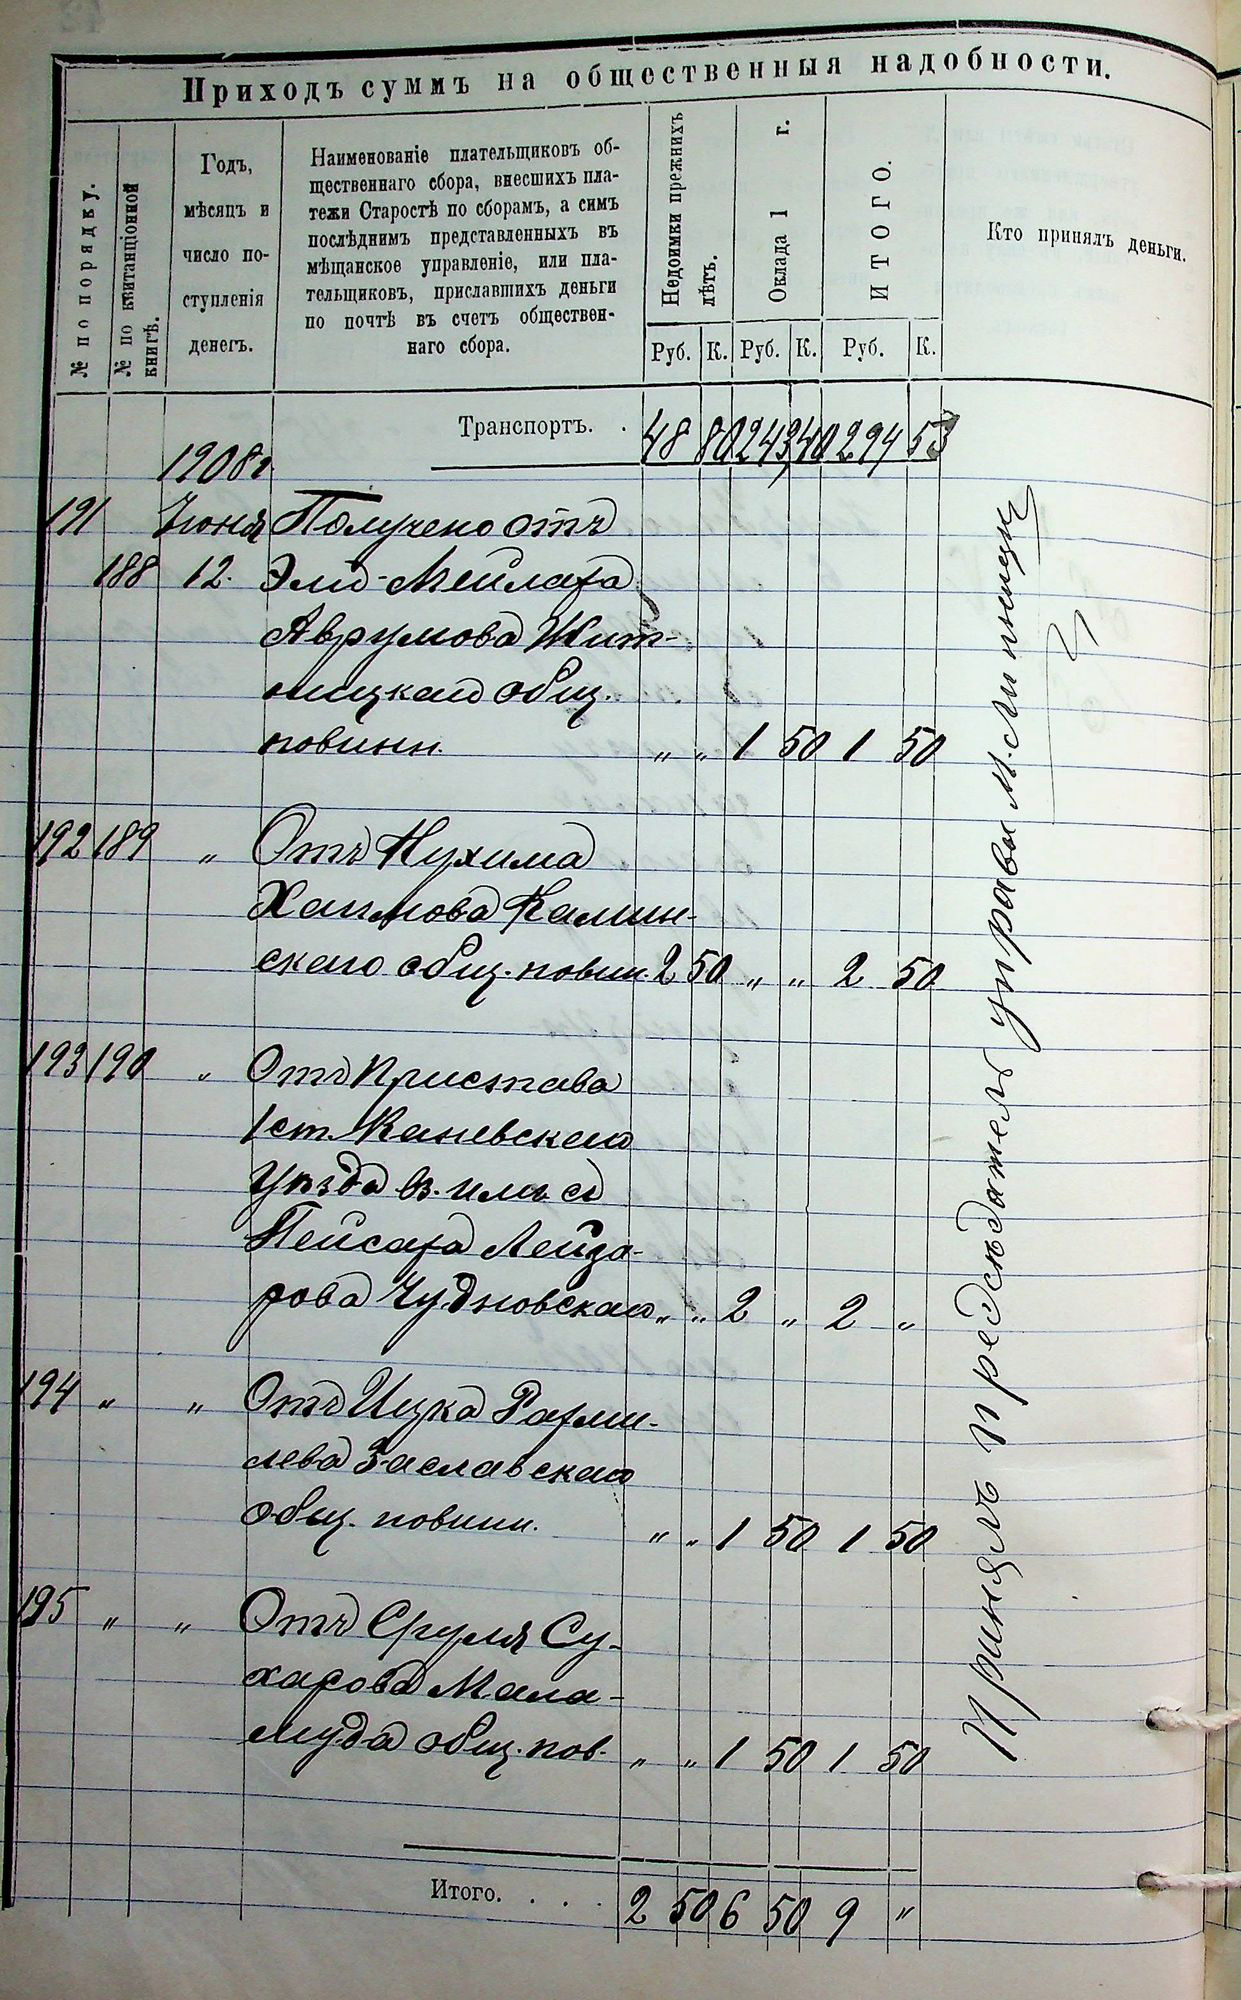 Приходъ суммъ на общественныя надобности.
№ по порядку.
№ по квитанціонной книгѣ.
Годъ,
мѣсяцъ и
число по-
ступленія
денегъ.
Наименованіе плательщиковъ об-
щественнаго сбора, внесшихъ пла-
тежи Старостѣ по сборамъ, а симъ
послѣднимъ представленныхъ въ
мѣщанское управленіе, или пла-
тельщиковъ, приславшихъ деньги
по почтѣ въ счетъ обществен-
наго сбора.
Недоимки прежнихъ
лѣтъ.
Оклада 1 г.
ИТОГО.
Кто принялъ деньги.
Руб. К. Руб. К. Руб. К.
Транспортъ. . 48 80 243 40 294 53
1908г
191 Іюня Получено отъ
188 12. Эли-Мейлаха
Аврумова Жит-
ницкаго общ.
повинн. „ „ 1 50 1 50
192 189 „ Отъ Нухима
Хаимова Калин-
скаго общ. повин. 2 50 „ „ 2 50
193 190 „ Отъ Пристава
1 ст. Каневскаго
Уѣзда вз. имъ съ
Пейсаха Лейза-
рова Чудновскаго „ „ 2 „ 2 „
194 „ „ Отъ Ицка Рахми-
лева Заславскаго
общ. повинн. „ „ 1 50 1 50
195 „ „ Отъ Сруля Су-
харова Мала-
муда общ. пов. „ „ 1 50 1 50
Итого. . . . 2 50 6 50 9 „
Принялъ предсѣдатель управы М. Липницк